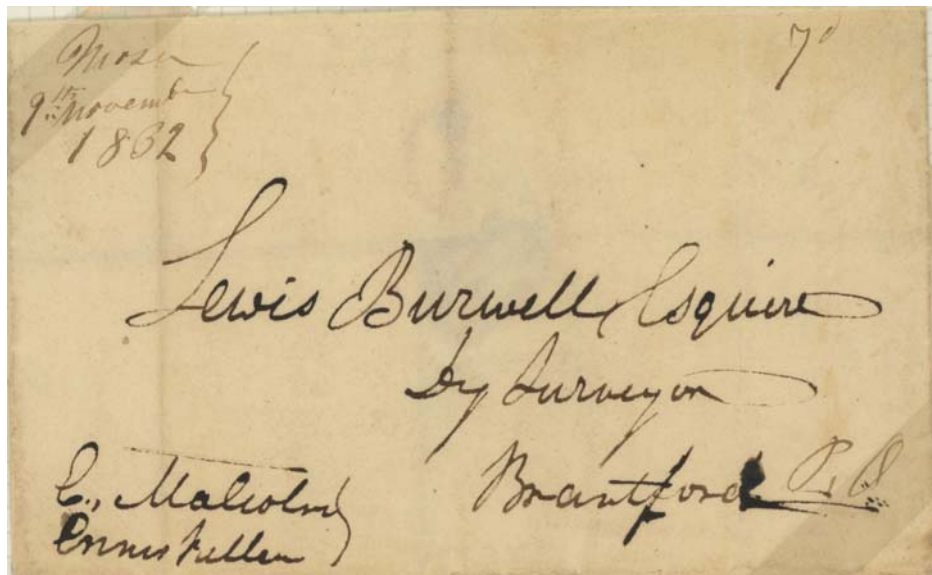 Mosa
9th November
1832
7d
Lewis Burwell Esquire
Dy Surveyor
Brantford P.O
E., Malcolm
Enniskillen